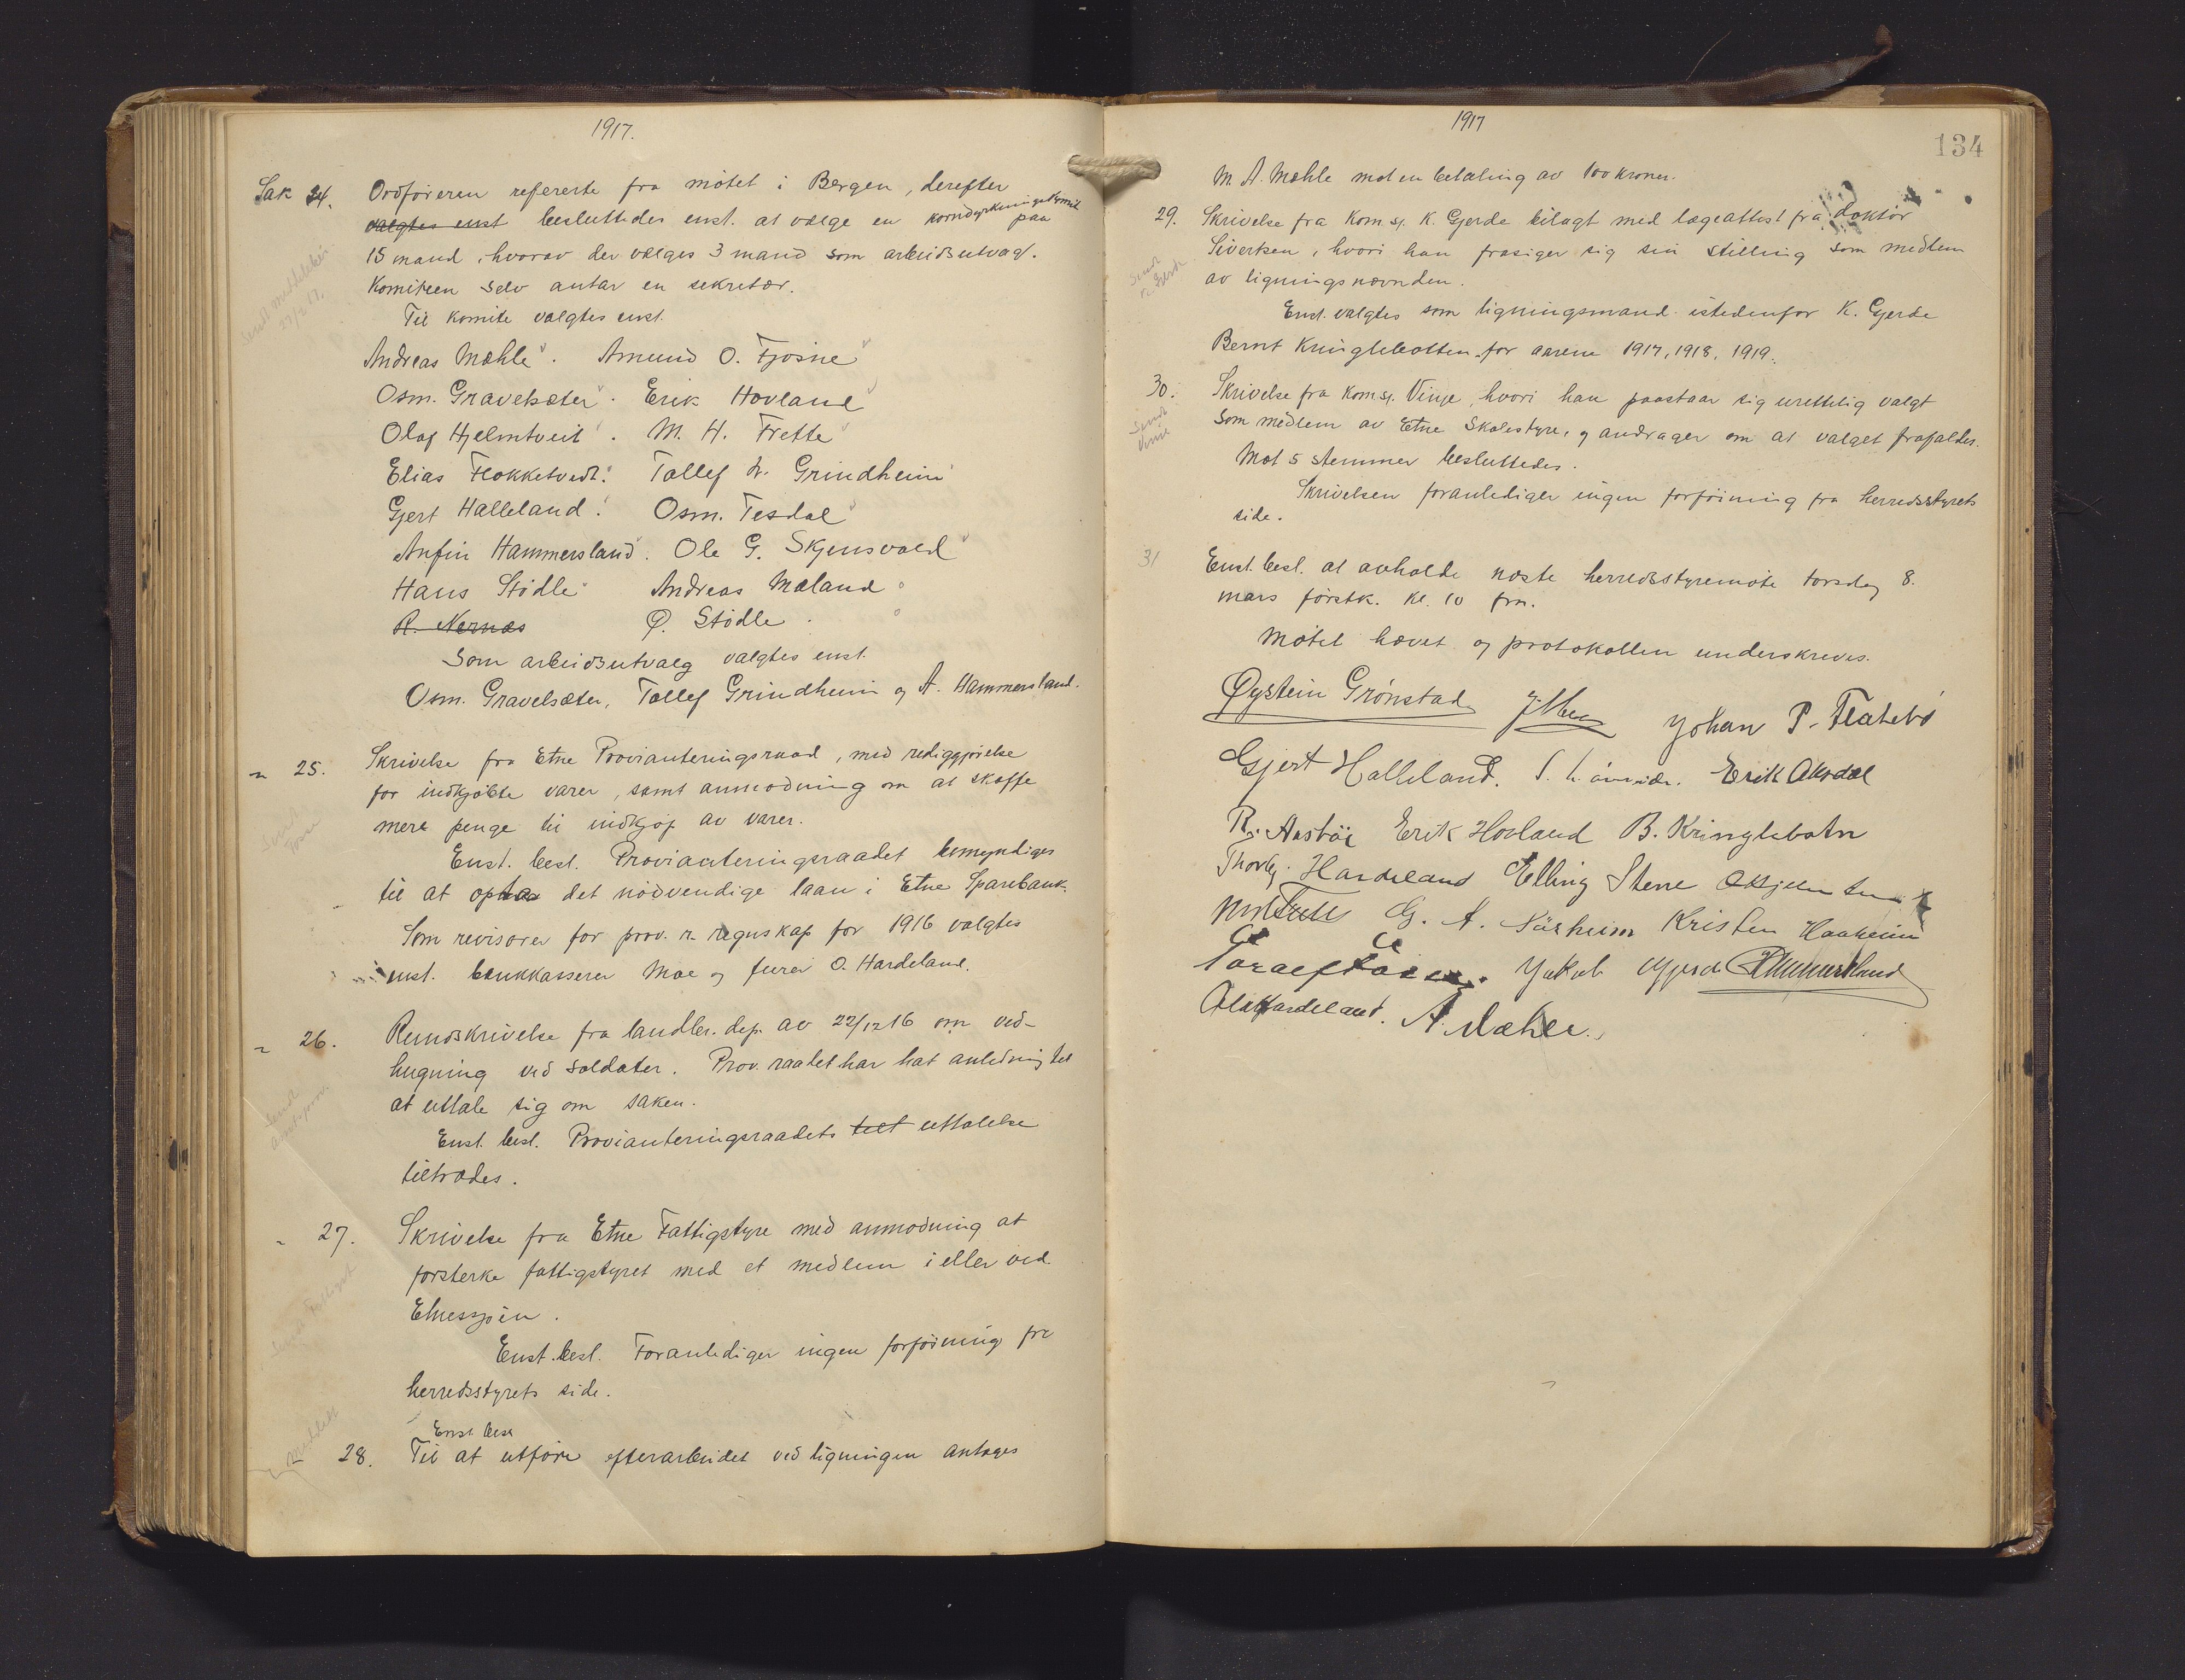 1917.
Sak 24. Ordføreren refererte fra møtet i Bergen, derefter
valgtes enst besluttedes enst. at vælge en korndyrkningskomite paa
15 mand, hvorav der vælges 3 mand som arbeidsutvag.
Komiteen selv antar en sekretær.
Til komite valgtes enst.
Andreas Mæhle. Amund O. Fjøsne
Osm. Gravelsæter. Erik Hovland
Olaf Hjelmtveit. M. H. Frette
Elias Flokketvedt. Tollef A. Grindheim
Gjert Halleland. Osm. Tesdal
Anfin Hammersland. Ole G. Skjensvold
Hans Stødle Andreas Mæland
R. Nernæs Ø. Stødle.
Som arbeidsutvalg valgtes enst.
Osm. Gravelsæter, Tollef Grindheim og A. Hammersland.
" 25. Skrivelse fra Etne Provianteringsraad, med rediggjørelse
for indkjøbte varer, samt anmodning om at skaffe
mere penge til indkjøp av varer.
Enst. besl. Provianteringsraadet bemyndiges
til at opta det nødvendige laan i Etne Sparebank.
Som revisorer for prov. r. regnskap for 1916 valgtes
enst. bankkasserer Moe og furer O. Hardeland.
" 26. Rundskrivelse fra landbr. dep. av 22/12 16 om ved-
hugning ved soldater. Prov. raadet har hat anledning til
at uttale sig om saken.
Enst. besl. Provianteringsraadets uttalelse
tiltrædes.
" 27. Skrivelse fra Etne Fattigstyre med anmodning at
forsterke fattigstyret med et medlem i eller ved
Etnessjøen.
Enst. besl. Foranlediger ingen forføining fra
herredsstyrets side.
Enst. besl
" 28. Til at utføre efterarbeidet ved ligningen antages
1917
134
M. A. Mæhle mot en betaling av 100 kroner.
29. Skrivelse fra Kom.sj. K. Gjerde bilagt med lægeattest fra doktor
Sivertsen, hvori han frasiger sig sin stilling som medlem
av ligningsnævnden.
Enst. valgtes som ligningsmand istedenfor K. Gjerde
Bernt Kringlebotten for aarene 1917, 1918, 1919.
30. Skrivelse fra Komsj. Vinje, hvori han paastaar sig urettelig valgt
som medlem av Etne Skolestyre, og andrager om at valget frafaldes.
Mot 5 stemmer besluttedes.
Skrivelsen foranlediger ingen forføining fra herredsstyrets
side.
31 Enst. besl. at avholde næste herredsstyremøte torsdag 8.
mars førstk. kl. 10 fm.
Møtet hævet og protokollen underskreves.
Øystein Grønstad Johan P. Flatebø
Gjert Halleland. Erik Aksdal
R. Austbø Erik Hovland B. Kringlebotn
Thorbj. Hardeland Elling Stene
M H Frette G. A. Sørheim Kristen Haaheim
Jakob Gjerde A Hammersland
Olak Hardeland. A. Mæhle.